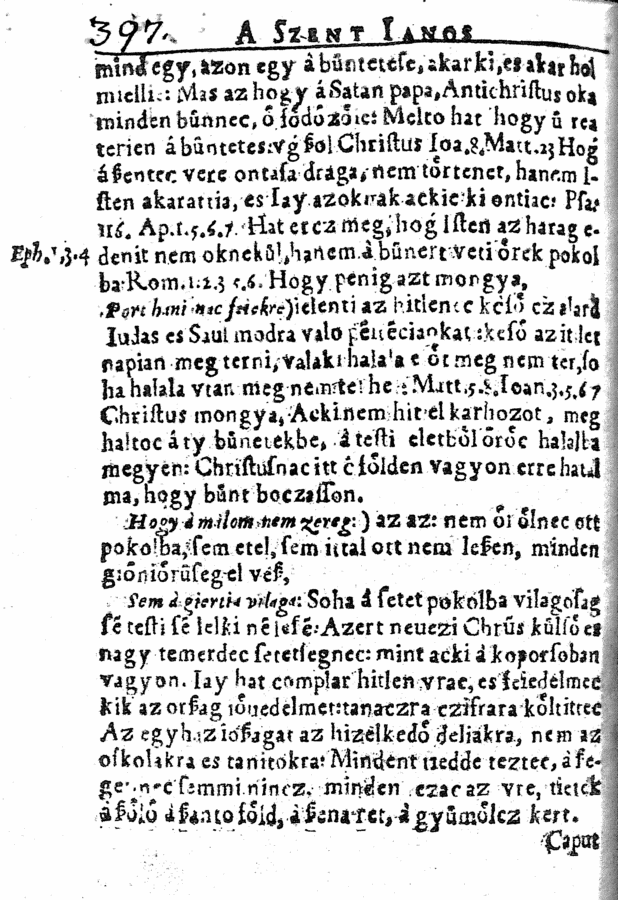 397. A SZENT IANOS
mind egy, azon egy à bűntetese, akar ki, es akar hol
mielli: Mas az hogy á Satan papa, Antichristus oka
minden bűnnec, ő födözöie: Melto hat hogy ű rea
terien á bűntetes: vǵ ßol Christus Ioa.8. Matt.23 Hoǵ
á ßentec vere ontasa draga, nem törtenet, hanem I-
sten akarattia, es Iay azoknak ackic ki ontiac: Psa:
116. Ap.1.5.6.7. Hat ercz meg, hoǵ Isten az harag e-
Eph. 1.3.4 denit nem oknekűl, hanem à bűnert veti örek pokol
ba Rom.1.2.3 5.6. Hogy penig azt mongya,
ielenti az hitlenec keső
Iudas es Saul modra valo pēitēciaokat: keső az itlet
napian meg terni, valaki halala e öt meg nem ter, so
ha halala vtan meg nem ter he: Matt.5.8. Ioan.3.5.6 7
Christus mongya, Acki nem hit el karhozot, meg
haltoc á ty bűnetekbe, á testi eletböl öröc halalba
megyen: Christusnac itt é földen vagyon erre hatal
ma, hogy bűnt boczasson.
Hogy á malom nem zereg:) az az: nem öröl​nec ott
pokolba, sem etel, sem ital ott nem leßen, minden
giöniörűseg el veß,
Sem á giertia vilaga: Soha á setet pokolba vilagosag
sē testi sē lelki nē lesē: Azert neuezi Chrűs kűlső es
nagy temerdec setetsegnec: mint acki á koporsoban
vagyon. Iay hat complar hitlen vrac, es feiedelmec
kik az orßag iöuedelmet: tanaczra czifrara költittec
Az egyhaz ioßagat az hizelkedő deliakra, nem az
oskolakra es tanitokra: Mindent tiedde teztec, á ße-
gennec semmi nincz. minden ezac az vre, tietek
á ßőlő á ßanto föld, à ßena ret, á gyűmölcz kert.
Caput